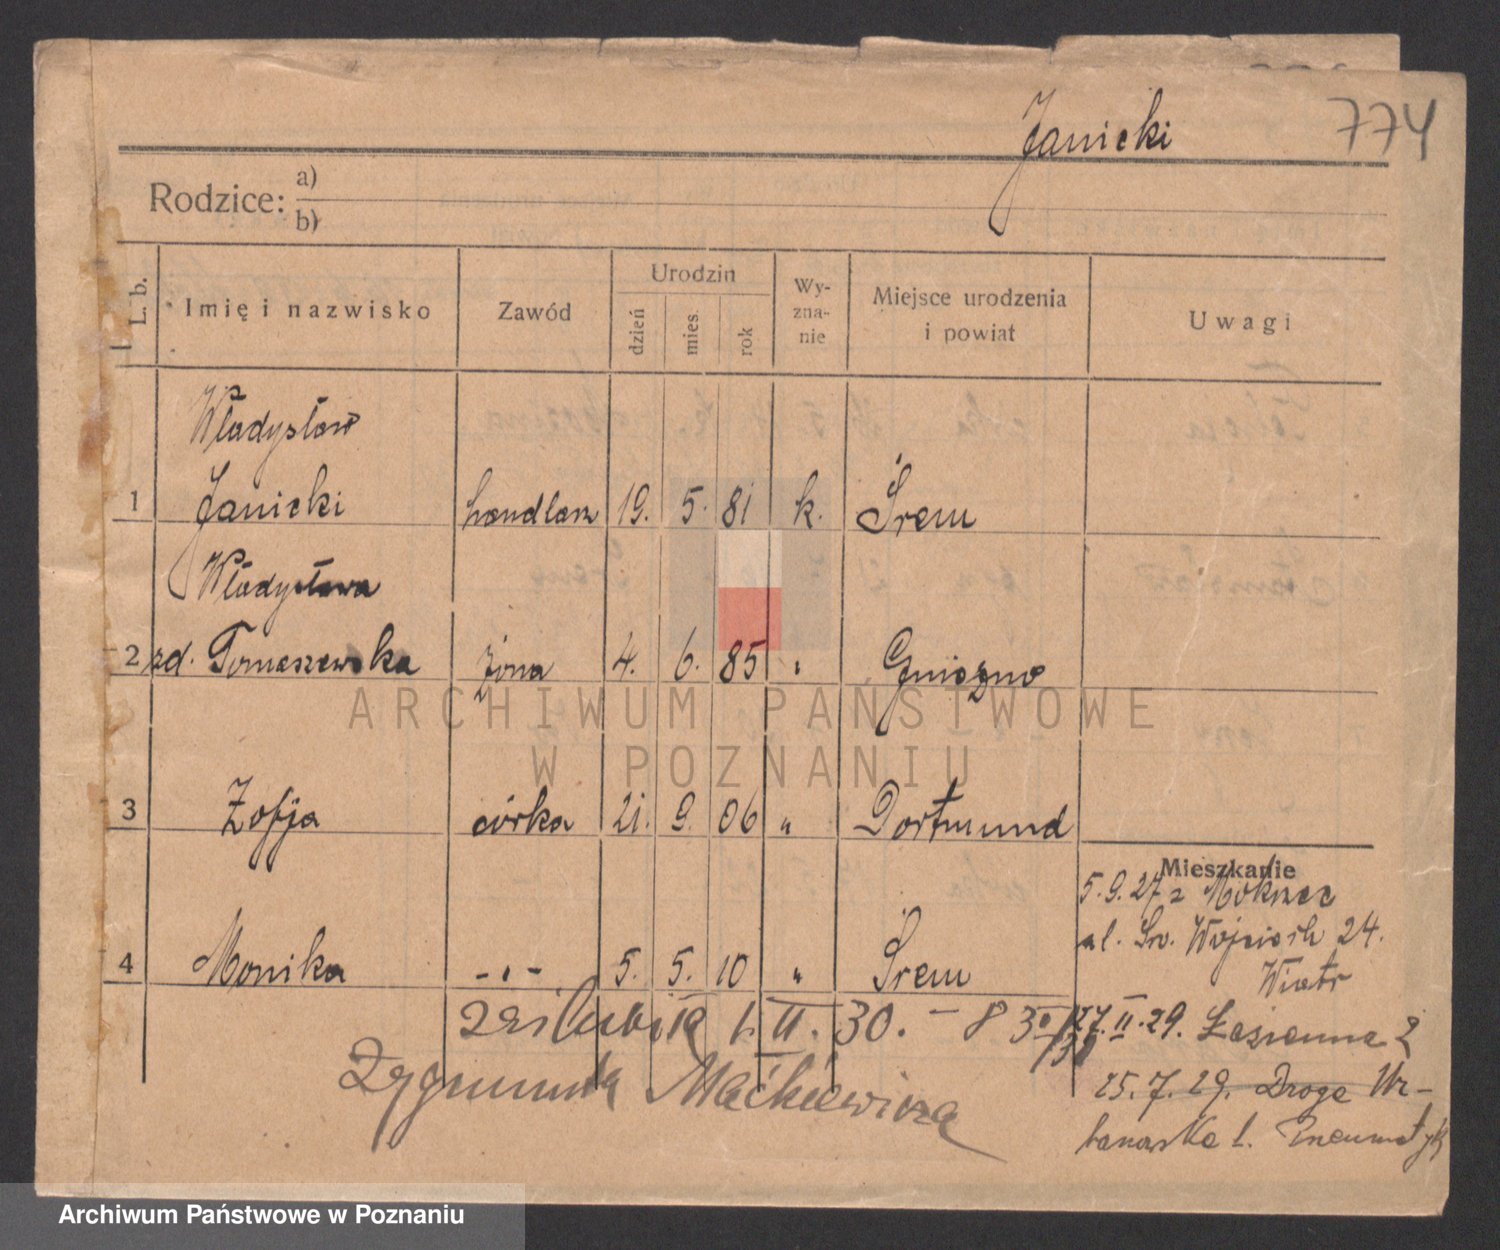 Janicki 774
Rodzice: a)
b)
L. b. Imię i nazwisko Zawód Urodzin dzień mies. rok Wy-zna-nie Miejsce urodzenia i powiat Uwagi
Władysław
1 Janicki handlarz 19. 5. 81 k. Śrem
Władysława
2 zd. Tomaszewska żona 4. 6. 85 " Gniezno
ARCHIWUM PAŃSTWOWE
W POZNANIU
3 Zofja córka 21. 9. 06 " Dortmund
Mieszkanie
5.9.27 z Mokrzec
ul. Św. Wojciech 24.
Wiatr
4 Monika -"- 5. 5. 10 " Śrem
zaślubiła 1. II. 30. - 8
27.II.29. Łazienna 2
Zygmunta Maćkiewicza
25.7.29. Droga Ur-
banowska 1. Pneumatyk
Archiwum Państwowe w Poznaniu